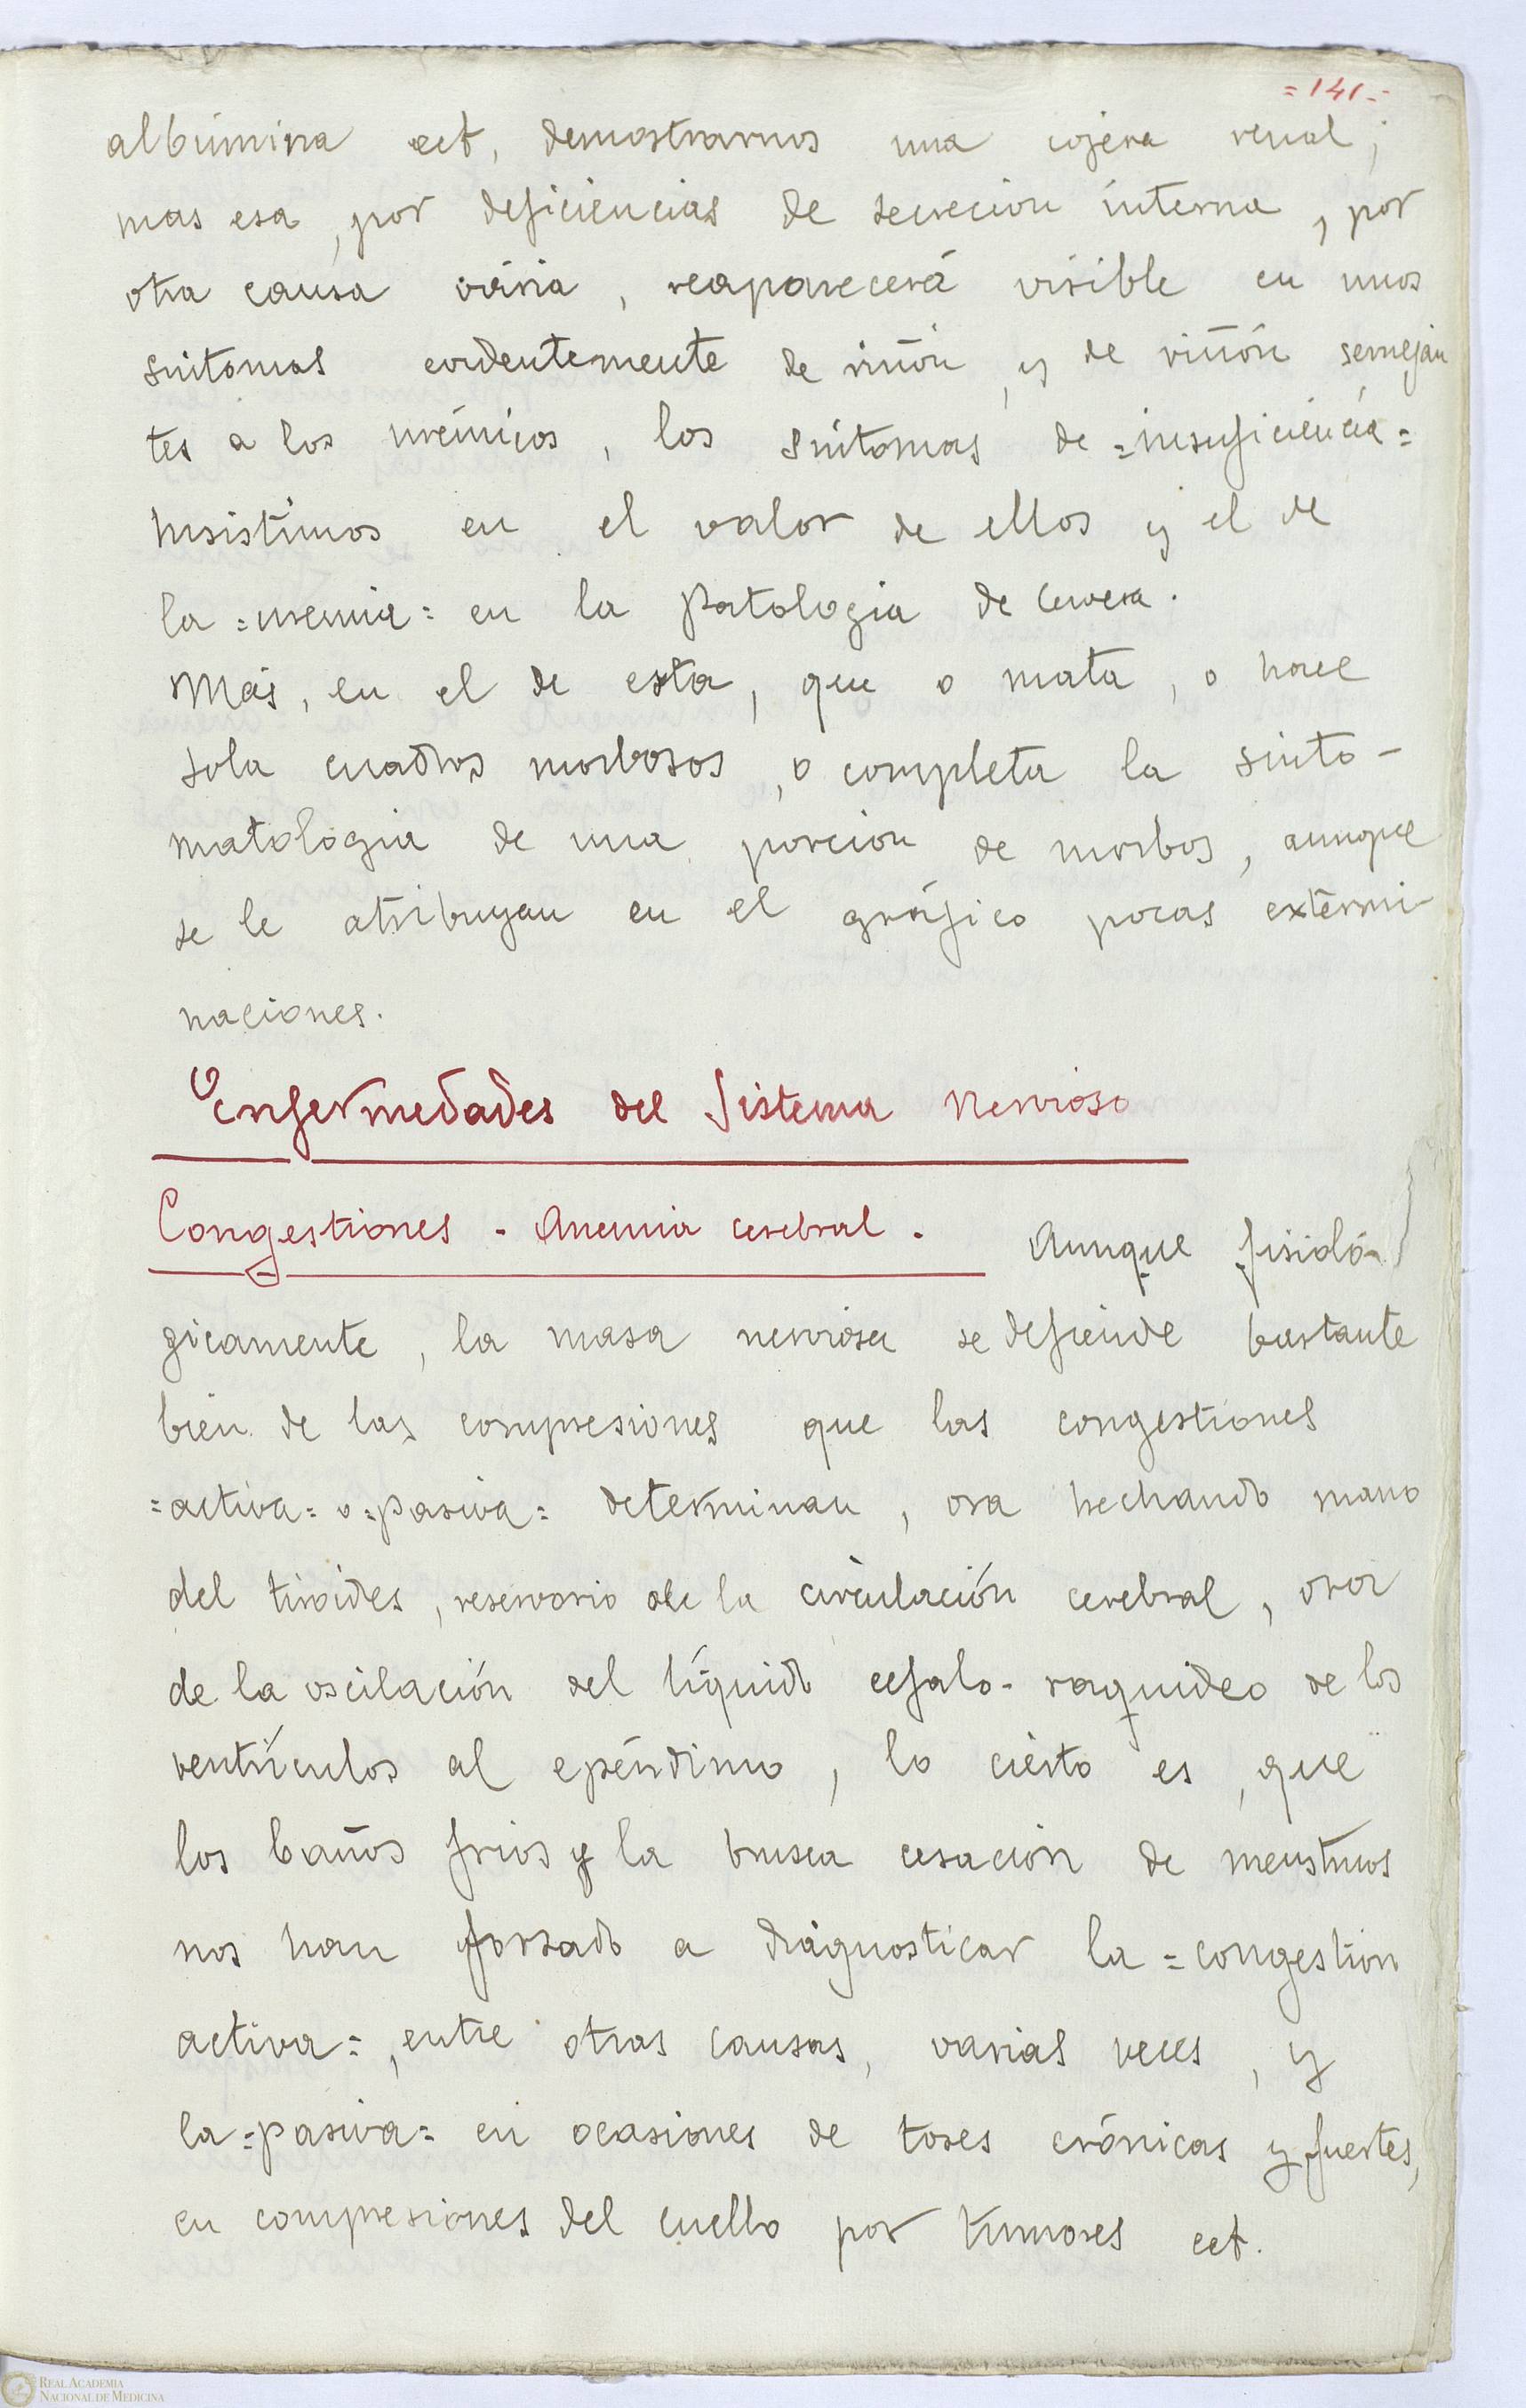 =141=
albúmina ect, demostrarnos una cojera renal;
mas esa, por deficiencias de secrecion interna, por
otra causa vária, reaparecerá visible en unos
sintomas evidentemente de riñón, y de riñón semejan
tes a los urémicos, los sintomas de =insuficiencia=
Insistimos en el valor de ellos y el de
la =uremia= en la Patologia de Cervera.
Más, en el de esta, que o mata, o hace
sola cuadros morbosos, o completa la sinto-
matologia de una porcion de morbos, aunque
se le atribuyan en el gráfico pocas extermi-
naciones.
Enfermedades del Sistema Nervioso
Congestiones - Anemia cerebral. Aunque fisioló-
gicamente, la masa nerviosa se defiende bastante
bien de las compresiones que las congestiones
=activa= o =pasiva= determinan, ora hechando mano
del tiroides, reservorio de la circulación cerebral, ora
de la oscilación del líquido cefalo-raquideo de los
ventrículos al epéndimo, lo cierto es, que
los baños frios y la brusca cesación de menstruos
nos han forzado a diagnosticar la =congestion
activa=, entre otras causas, varias veces, y
la =pasiva= en ocasiones de toses crónicas y fuertes,
en compresiones del cuello por tumores ect.
REAL ACADEMIA
NACIONAL DE MEDICINA